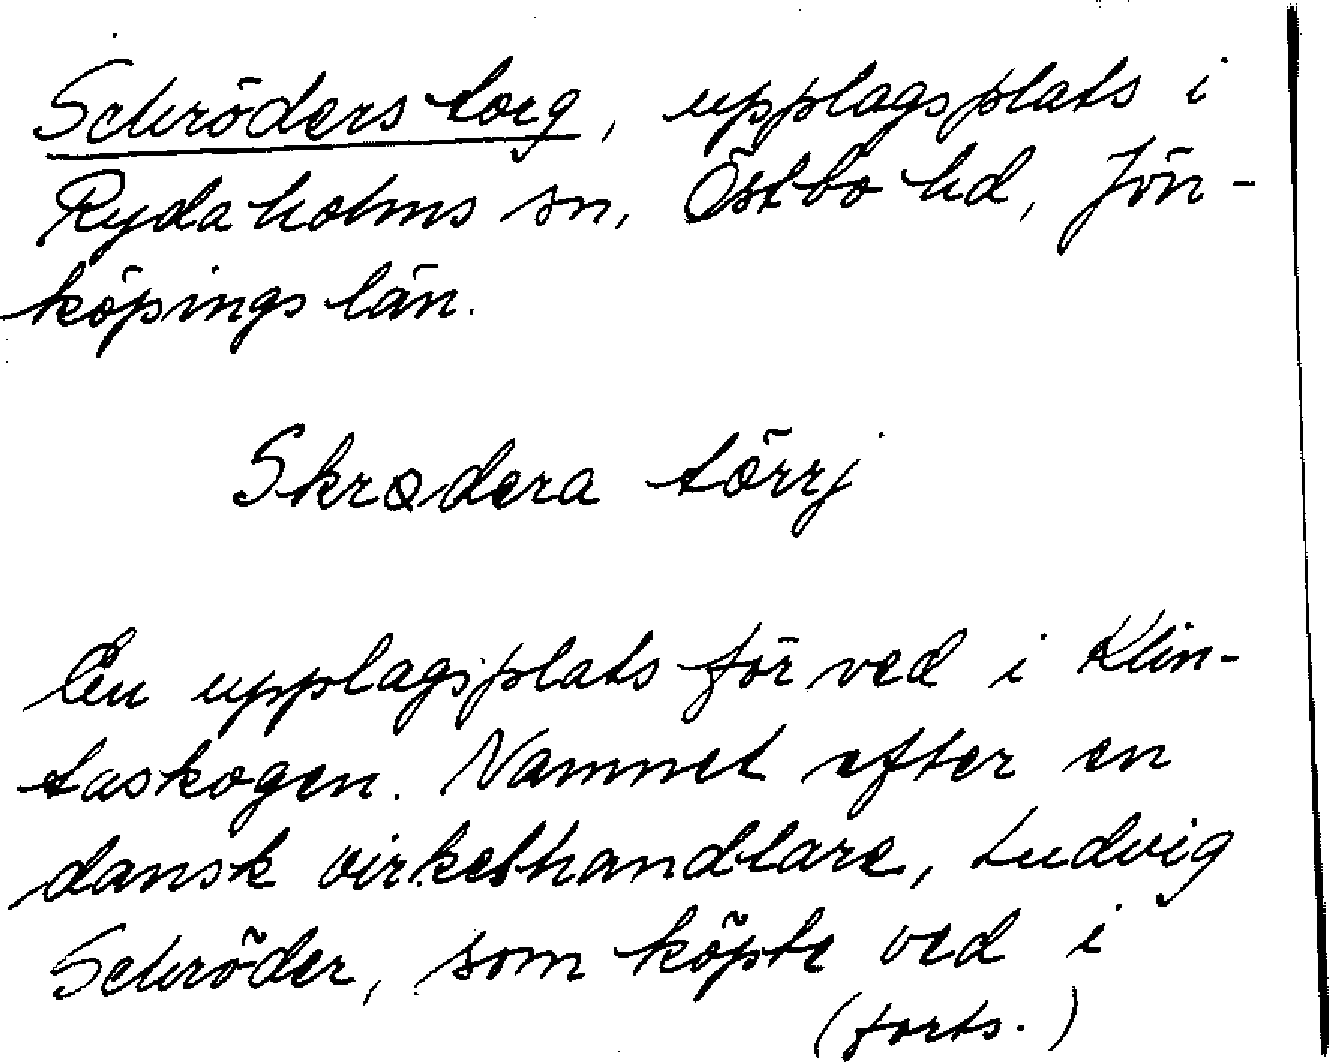 Schröders torg, upplagsplats i
Rydaholms sn, Östbo hd, Jön-
köpings län.
Skrodera törrj
En upplagsplats för ved i Klin-
taskogen. Namnet efter en
dansk virkeshandlare, Ludvig
Schröder, som köpte ved i
(forts.)